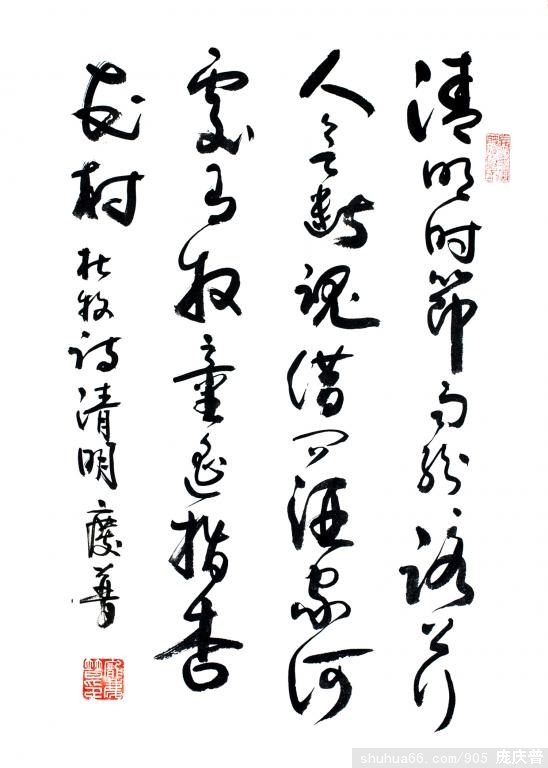 清明时節雨紛々路上行
人欲斷魂借问酒家何
處有牧童遥指杏
花村 杜牧诗清明 慶普
shuhua66.com/905 庞庆普